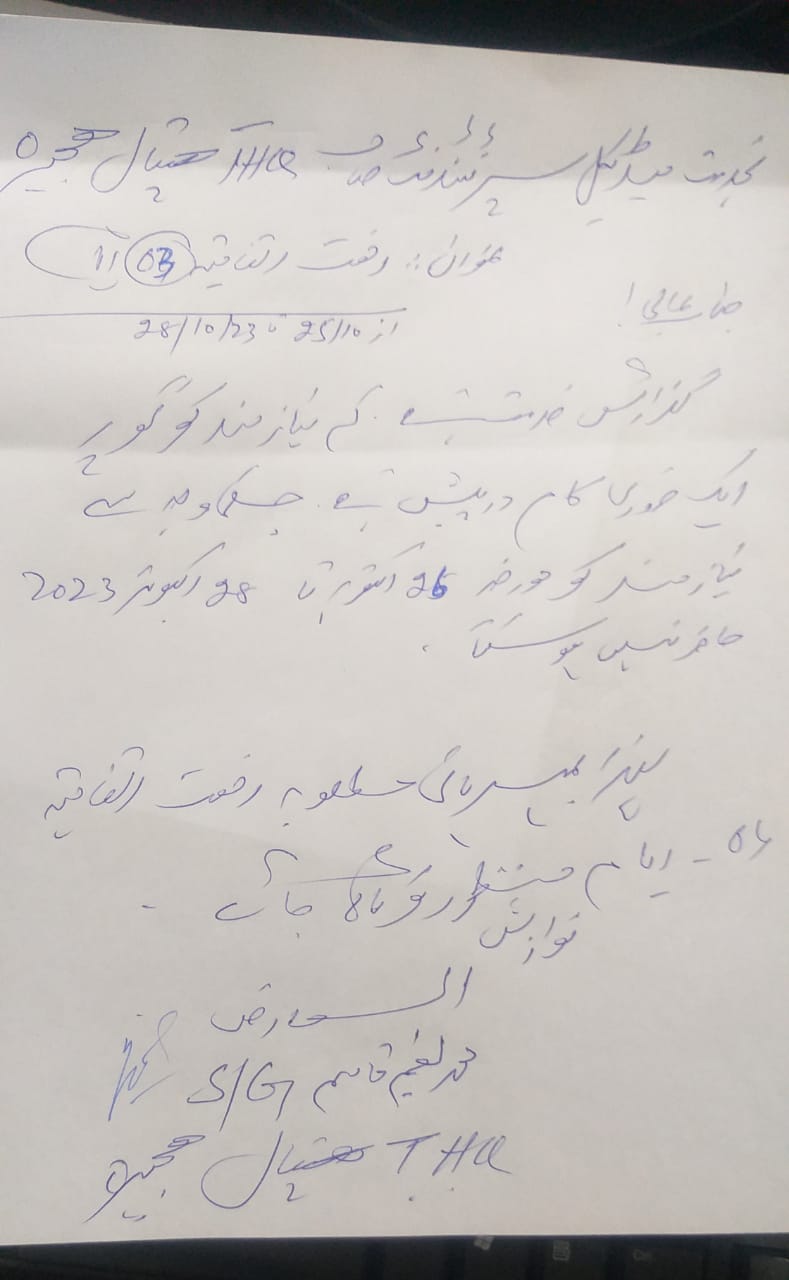 بخدمت میڈیکل سپرنٹنڈنٹ صاحب THQ ہسپتال ہجیرہ
عنوان:: رخصت اتفاقیہ 03 ایام
جناب عالی!
از 25/10 تا 28/10/23
گذارش خدمت ہے۔ کہ نیازمند کو گھر پر
ایک ضروری کام درپیش ہے۔ جسکی وجہ سے
نیازمند کو مورخہ 26 اکتوبر تا 28 اکتوبر 2023
حاضر نہیں ہو سکتا۔
لہذا بمہربانی مطلوبہ رخصت اتفاقیہ
ایام منظور فرمائی جائے۔
نوازش
العارض
محمد نعیم قاسم S/G
THQ ہسپتال ہجیرہ